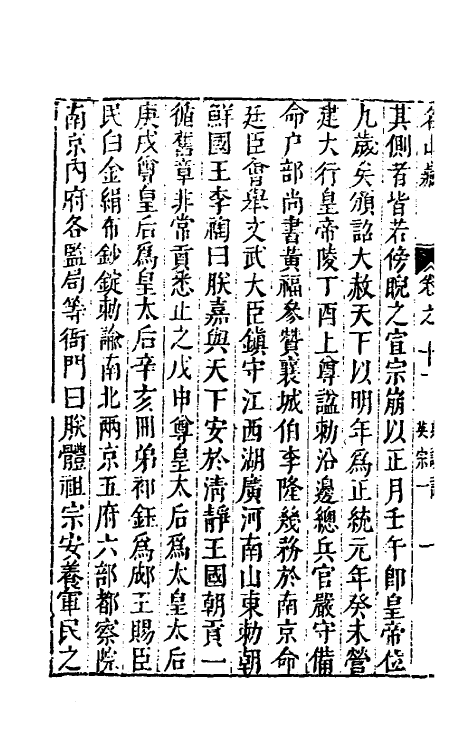 名山藏 卷之十一 英宗一 一
其側者皆若傍睨之宣宗崩以正月壬午即皇帝位
九歲矣頒詔大赦天下以明年為正統元年癸未營
建大行皇帝陵丁酉上尊謚勅沿邊總兵官嚴守備
命户部尚書黃福參贊襄城伯李隆幾務於南京命
廷臣會舉文武大臣鎮守江西湖廣河南山東勅朝
鮮國王李祹曰朕嘉與天下安於清靜王國朝貢一
循舊章非常貢悉止之戊申尊皇太后為太皇太后
庚戌尊皇后為皇太后辛亥冊弟祁鈺為郕王賜臣
民白金絹布鈔錠勅諭南北兩京五府六部都察院
南京內府各監局等衙門曰朕體祖宗安養軍民之